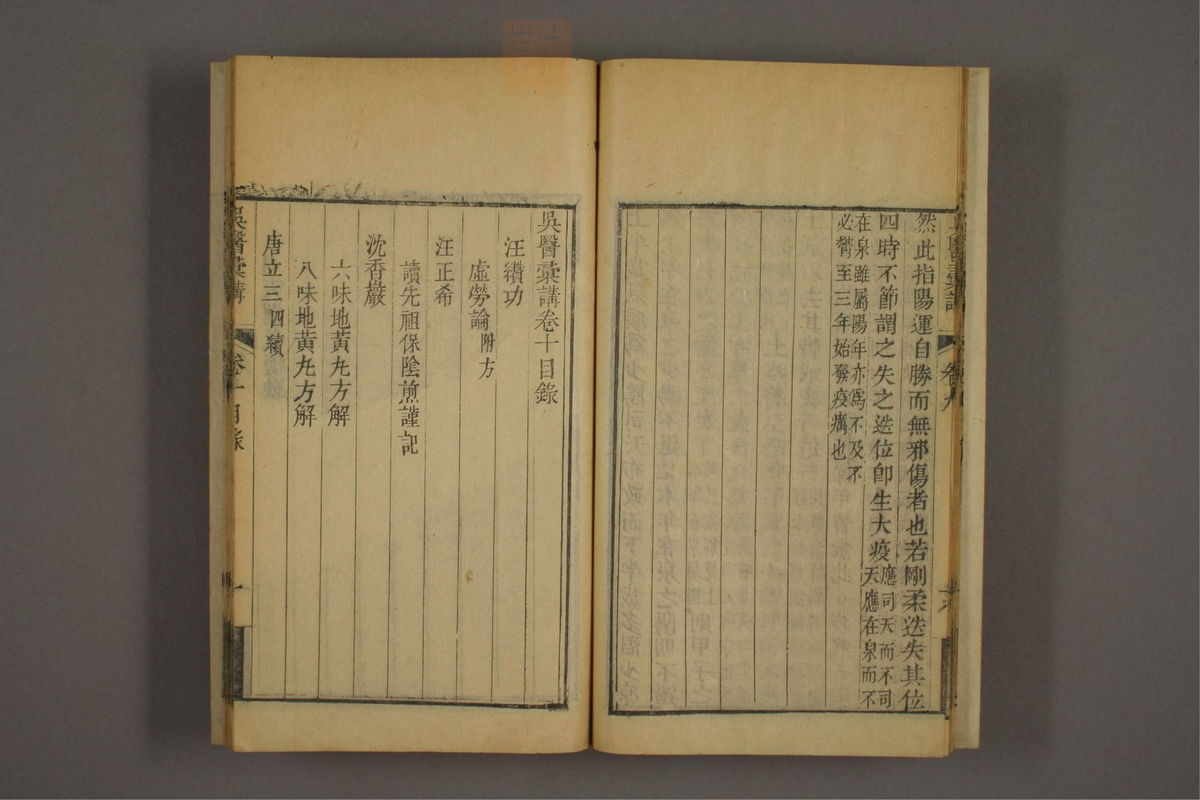 然此指陽運自勝而無邪傷者也若剛柔迭失其位
四時不節謂之失之迭位卽生大疫應司天而不司
天應在泉而不
在泉雖屬陽年亦爲不及不
必嘗至三年始發疫癘也
吳醫彙講
卷九
吳醫彙講卷十目錄
汪纘功
虛勞論附方
汪正希
讀先祖保陰煎謹記
沈香巖
六味地黃丸方解
八味地黃丸方解
唐立三四續
吳醫彙講
卷十目錄
一